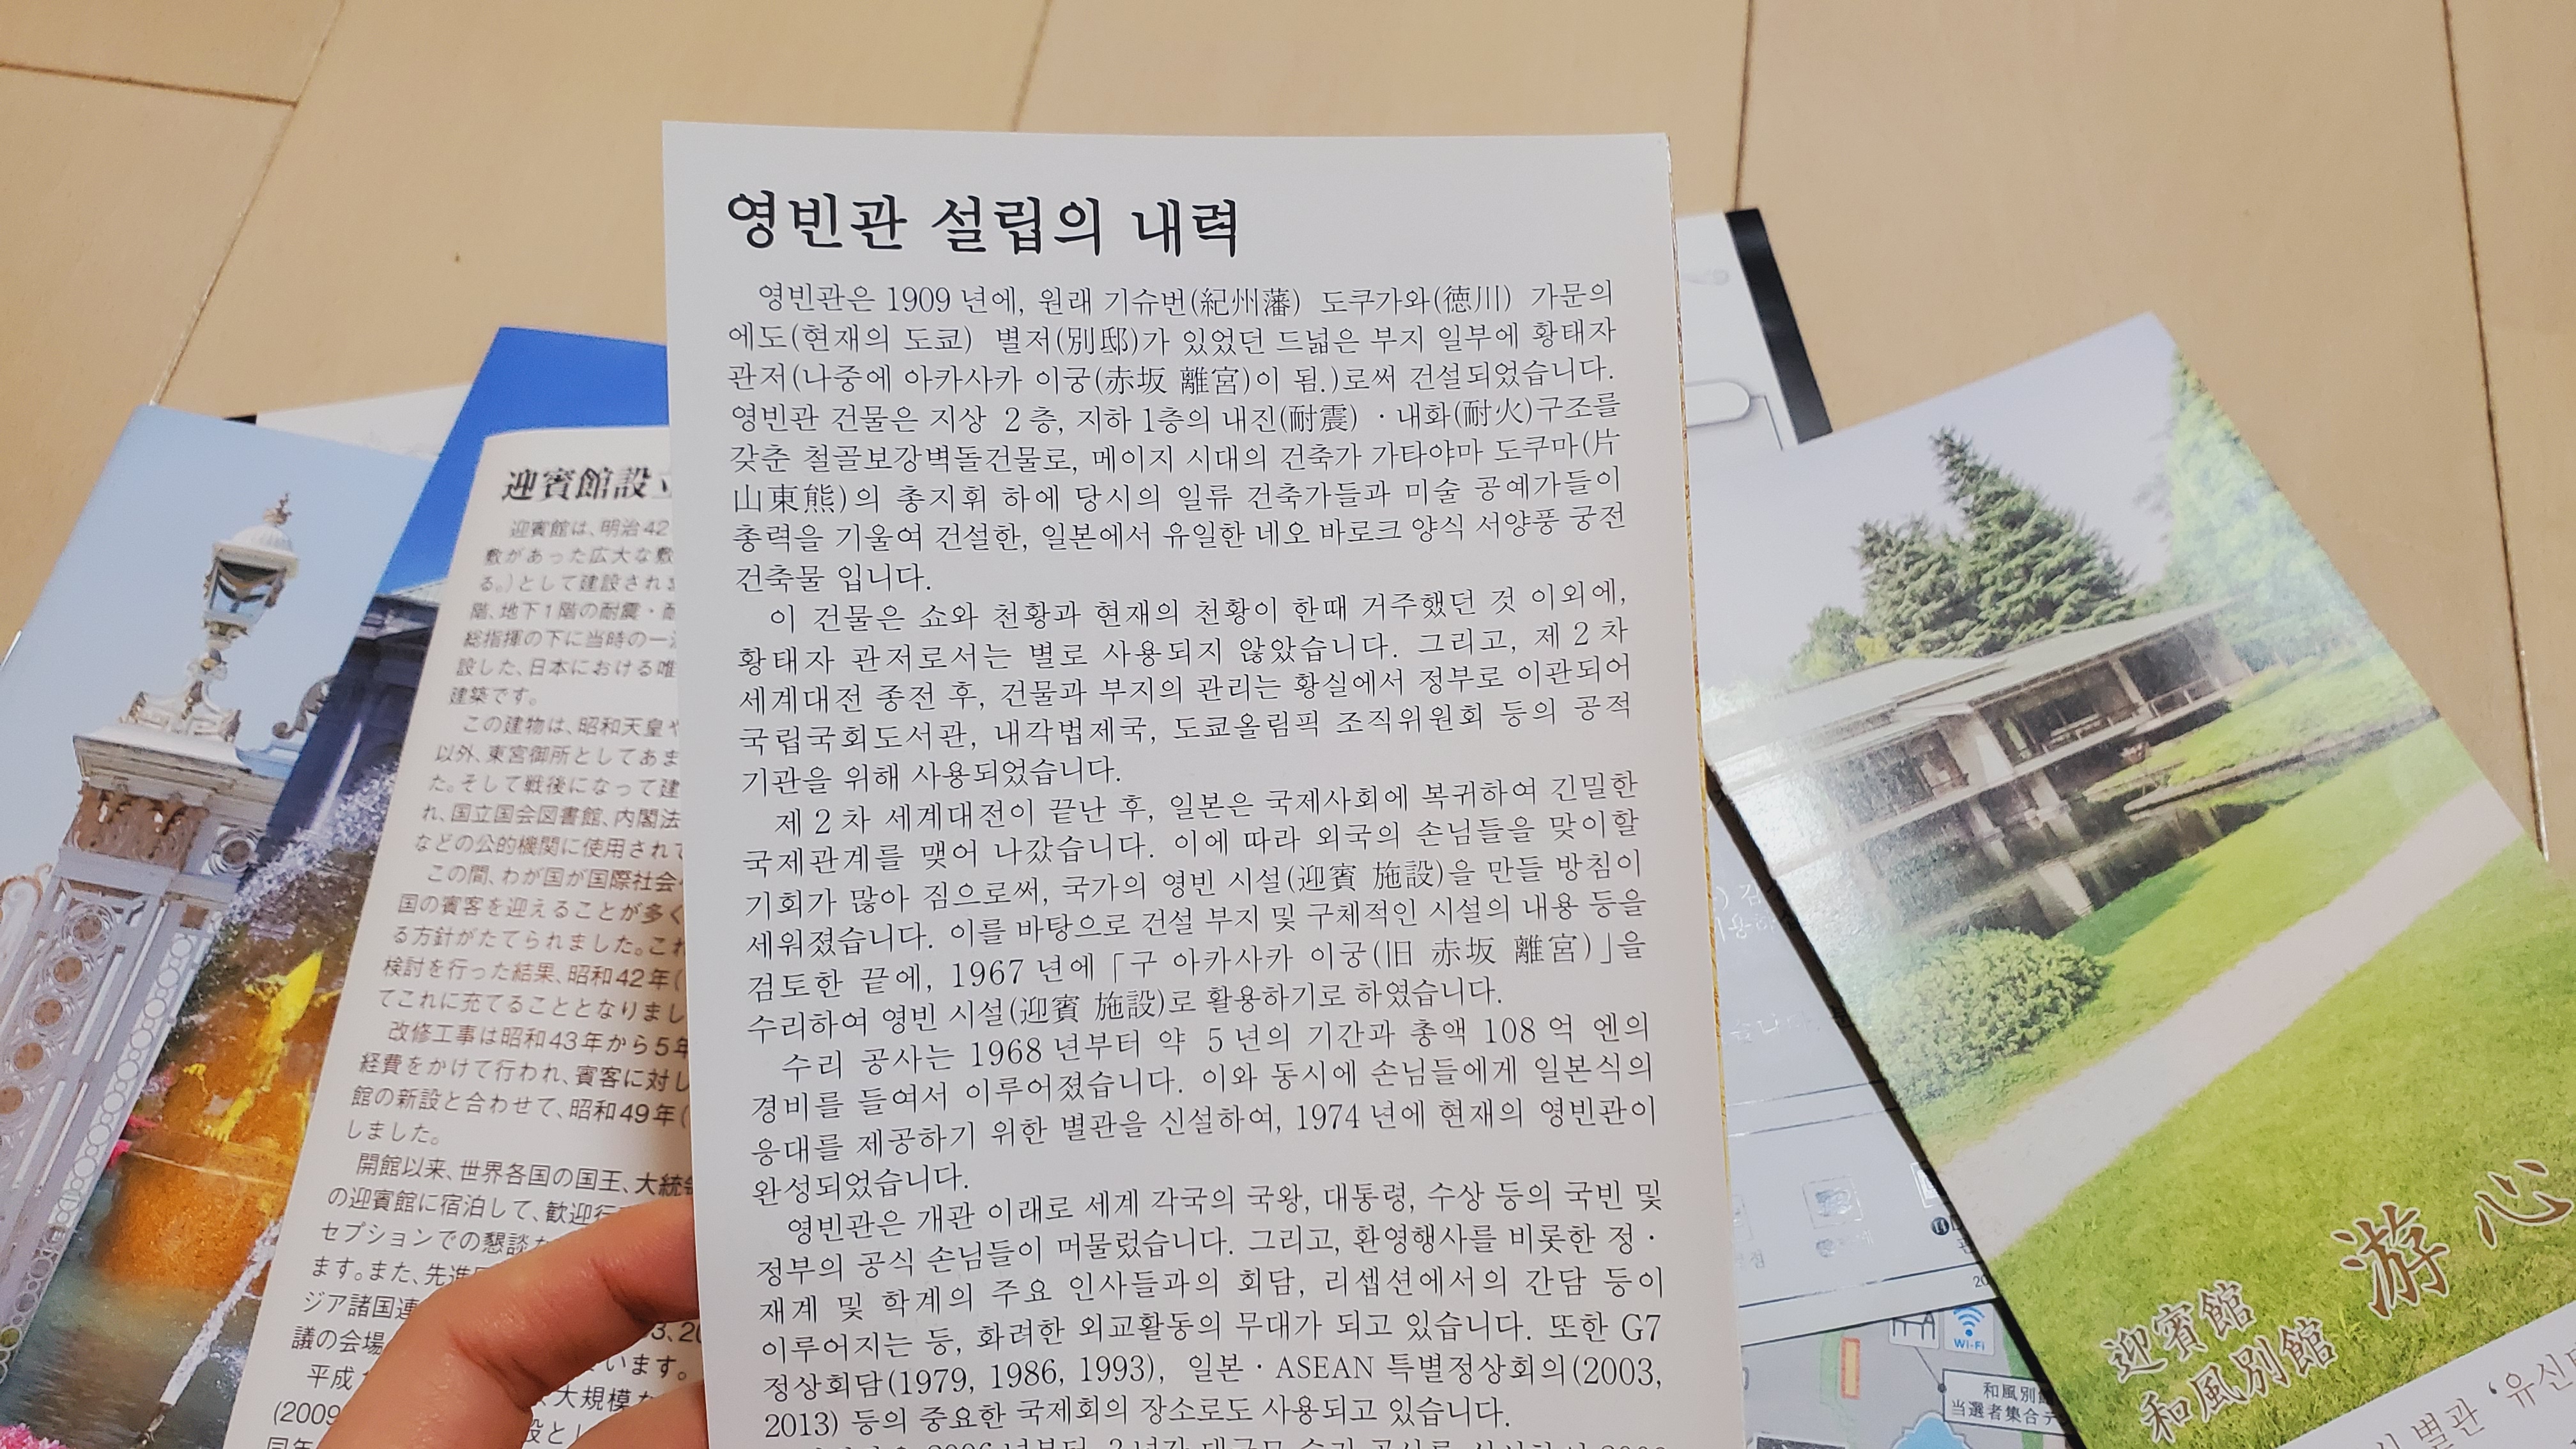 영빈관 설립의 내력
영빈관은 1909 년에, 원래 기슈번(紀州藩) 도쿠가와(徳川) 가문의
에도(현재의 도쿄) 별저(別邸)가 있었던 드넓은 부지 일부에 황태자
관저(나중에 아카사카 이궁(赤坂 離宮)이 됨.)로써 건설되었습니다.
영빈관 건물은 지상 2 층, 지하 1층의 내진(耐震) · 내화(耐火)구조를
갖춘 철골보강벽돌건물로, 메이지 시대의 건축가 가타야마 도쿠마(片
山東熊)의 총지휘 하에 당시의 일류 건축가들과 미술 공예가들이
총력을 기울여 건설한, 일본에서 유일한 네오 바로크 양식 서양풍 궁전
건축물 입니다.
이 건물은 쇼와 천황과 현재의 천황이 한때 거주했던 것 이외에,
황태자 관저로서는 별로 사용되지 않았습니다. 그리고, 제 2 차
세계대전 종전 후, 건물과 부지의 관리는 황실에서 정부로 이관되어
국립국회도서관, 내각법제국, 도쿄올림픽 조직위원회 등의 공적
기관을 위해 사용되었습니다.
제 2 차 세계대전이 끝난 후, 일본은 국제사회에 복귀하여 긴밀한
국제관계를 맺어 나갔습니다. 이에 따라 외국의 손님들을 맞이할
기회가 많아 짐으로써, 국가의 영빈 시설(迎賓 施設)을 만들 방침이
세워졌습니다. 이를 바탕으로 건설 부지 및 구체적인 시설의 내용 등을
검토한 끝에, 1967 년에 「구 아카사카 이궁(旧 赤坂 離宮)」을
수리하여 영빈 시설(迎賓 施設)로 활용하기로 하였습니다.
수리 공사는 1968 년부터 약 5 년의 기간과 총액 108 억 엔의
경비를 들여서 이루어졌습니다. 이와 동시에 손님들에게 일본식의
응대를 제공하기 위한 별관을 신설하여, 1974 년에 현재의 영빈관이
완성되었습니다.
영빈관은 개관 이래로 세계 각국의 국왕, 대통령, 수상 등의 국빈 및
정부의 공식 손님들이 머물렀습니다. 그리고, 환영행사를 비롯한 정 ·
재계 및 학계의 주요 인사들과의 회담, 리셉션에서의 간담 등이
이루어지는 등, 화려한 외교활동의 무대가 되고 있습니다. 또한 G7
정상회담(1979, 1986, 1993), 일본 · ASEAN 특별정상회의(2003,
2013) 등의 중요한 국제회의 장소로도 사용되고 있습니다.
迎賓館設
迎賓館は、明治42
敷があった広大な敷
る。)として建設され
階、地下1階の耐震・耐
総指揮の下に当時の一
設した、日本における唯
建築です。
この建物は、昭和天皇や
以外、東宮御所としてあま
た。そして戦後になって建
れ、国立国会図書館、内閣法
などの公的機関に使用されて
この間、わが国が国際社会
国の賓客を迎えることが多く
る方針がたてられました。これ
検討を行った結果、昭和42年(
てこれに充てることとなりまし
改修工事は昭和43年から5年
経費をかけて行われ、賓客に対し
館の新設と合わせて、昭和49年(
しました。
開館以来、世界各国の国王、大統
の迎賓館に宿泊して、歓迎行
セプションでの懇談
ます。また、先進
ジア諸国
議の会場
います。
平成
大規模
(2009
游心
迎賓館
和風別館
별관 '유신
Wi-Fi
和風別
当選者集合